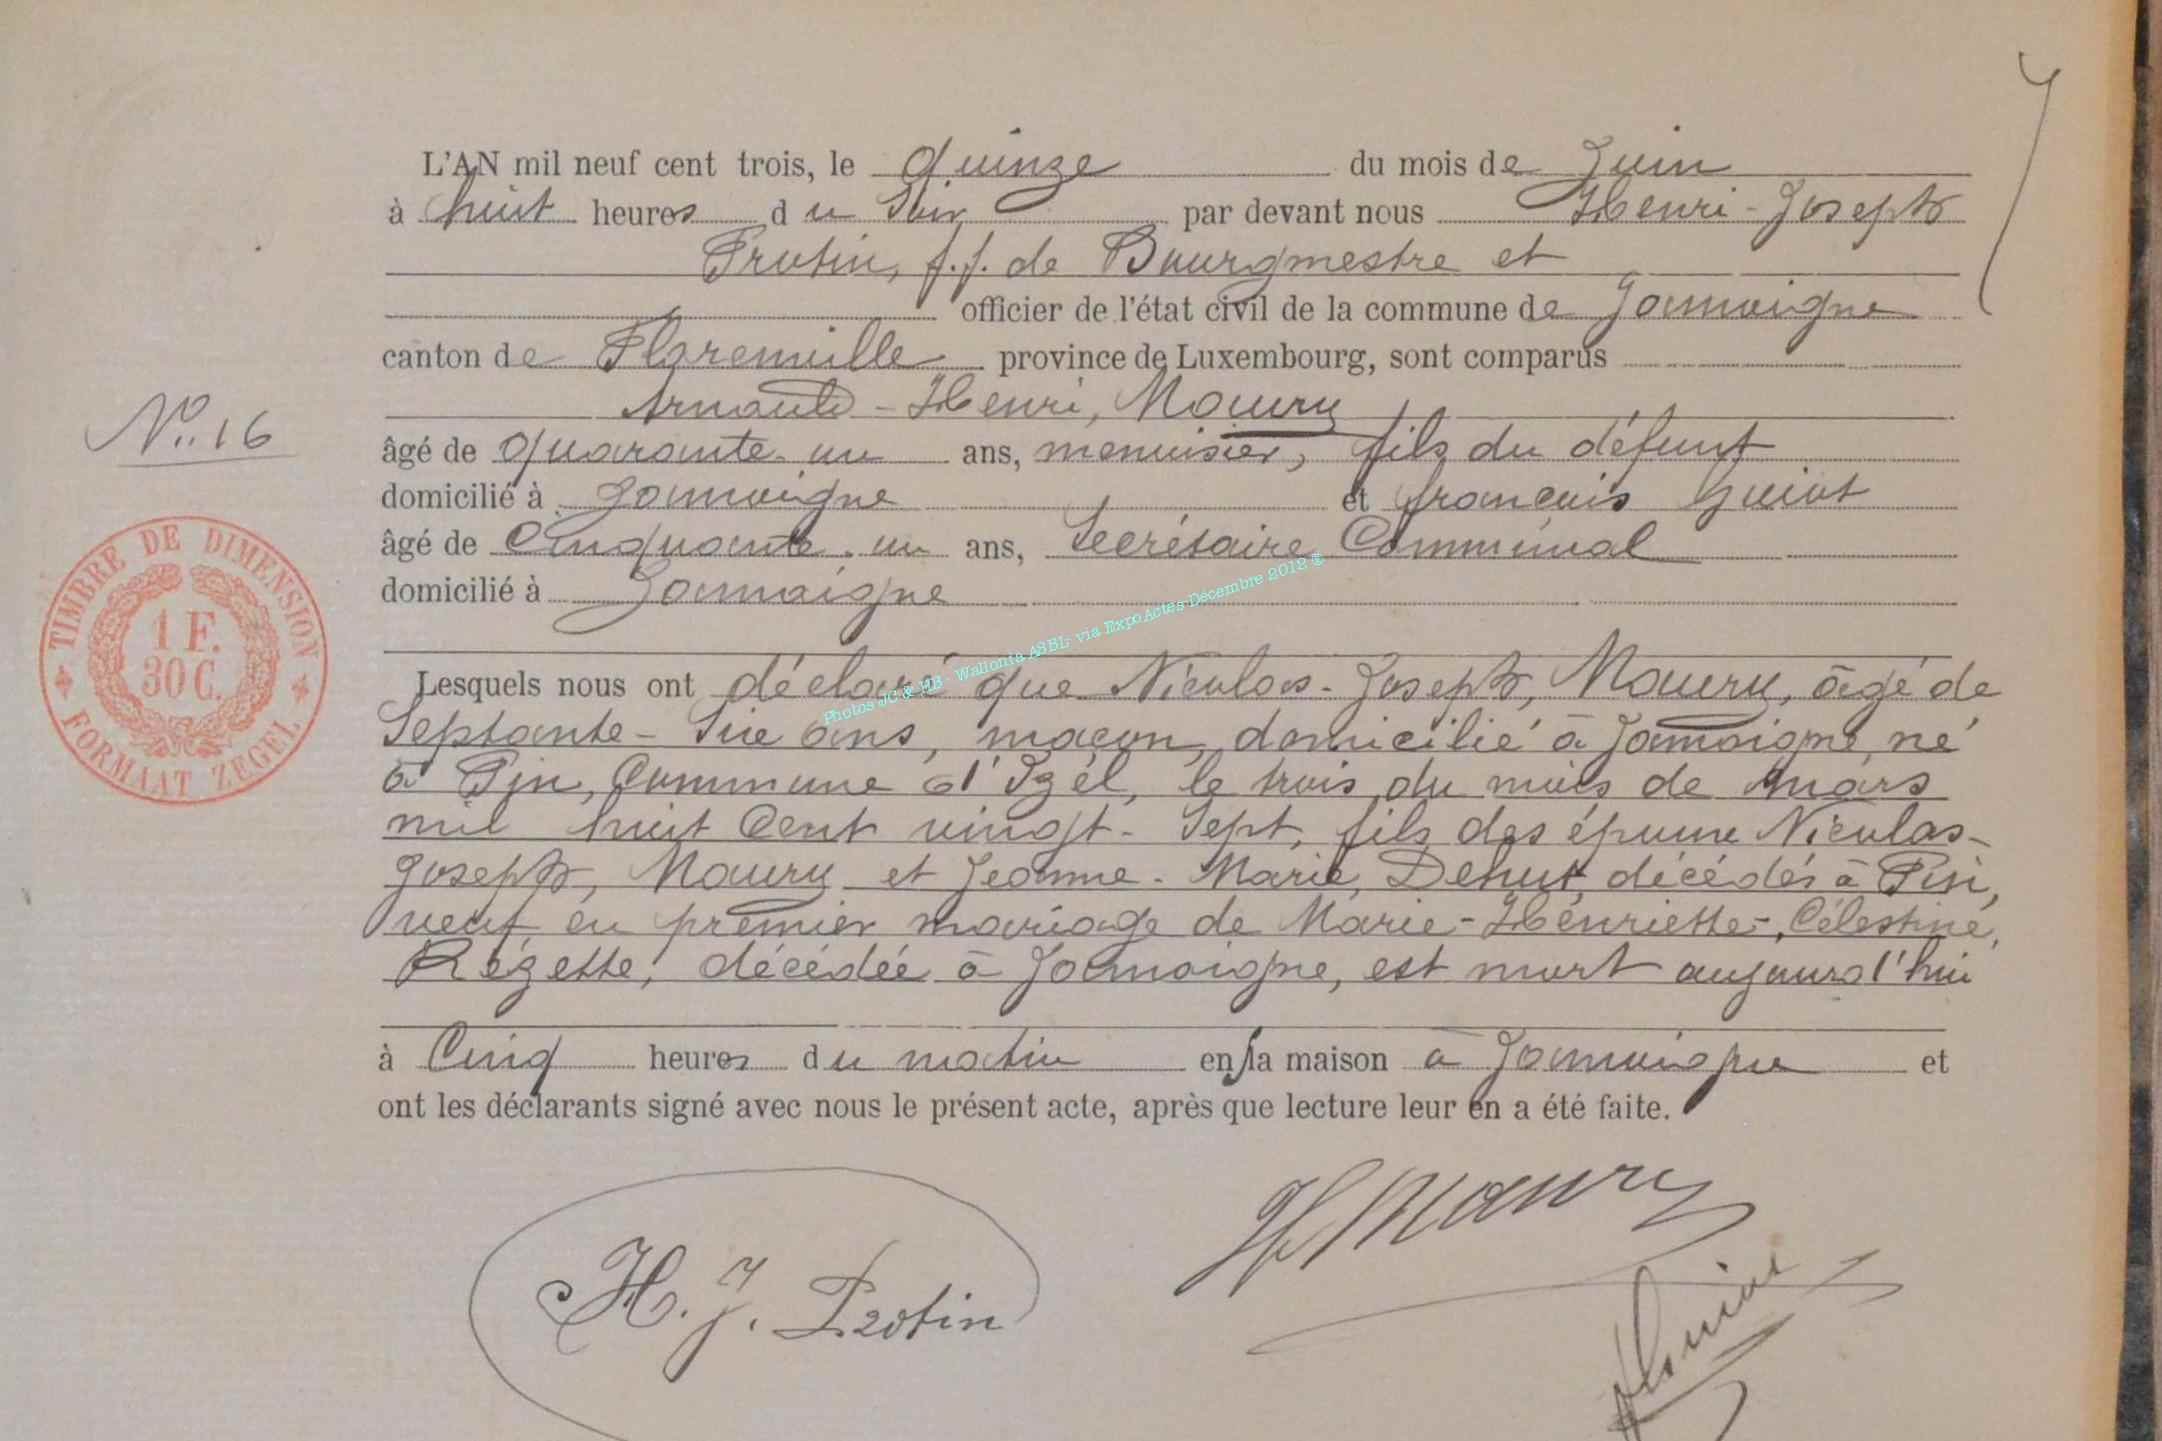 L'AN mil neuf cent trois, le quinze du mois de Juin
à huit heures du Soir par devant nous Henri-Joseph
Protin, f.f. de Bourgmestre et
officier de l'état civil de la commune de Jamoigne
canton de Florenville province de Luxembourg, sont comparus
Arnould-Henri, Maury
N° 16
âgé de quarante-un ans, menuisier, fils du défunt
domicilié à Jamoigne et françois Guiot
âgé de Cinquante-un ans, Secrétaire Communal
domicilié à Jamoigne
TIMBRE DE DIMENSION
1 F.
30 C.
FORMAAT ZEGEL
Photos JC & HB - Wallonia ASBL- via ExpoActes-Décembre 2012 ®
Lesquels nous ont déclaré que Nicolas-Joseph, Maury, âgé de
Septante-Six ans, maçon, domicilié à Jamoigne, né
à Pin, Commune d'Izel, le trois du mois de Mars
mil huit Cent vingt-Sept, fils des époux Nicolas-
Joseph, Maury et Jeanne-Marie, Dehut, décédés à Pin,
veuf en premier mariage de Marie-Henriette-Célestine,
Rézette, décédée à Jamoigne, est mort aujourd'hui
à Cinq heures du matin en sa maison à Jamoigne et
ont les déclarants signé avec nous le présent acte, après que lecture leur en a été faite.
H Maury
H. J. Protin